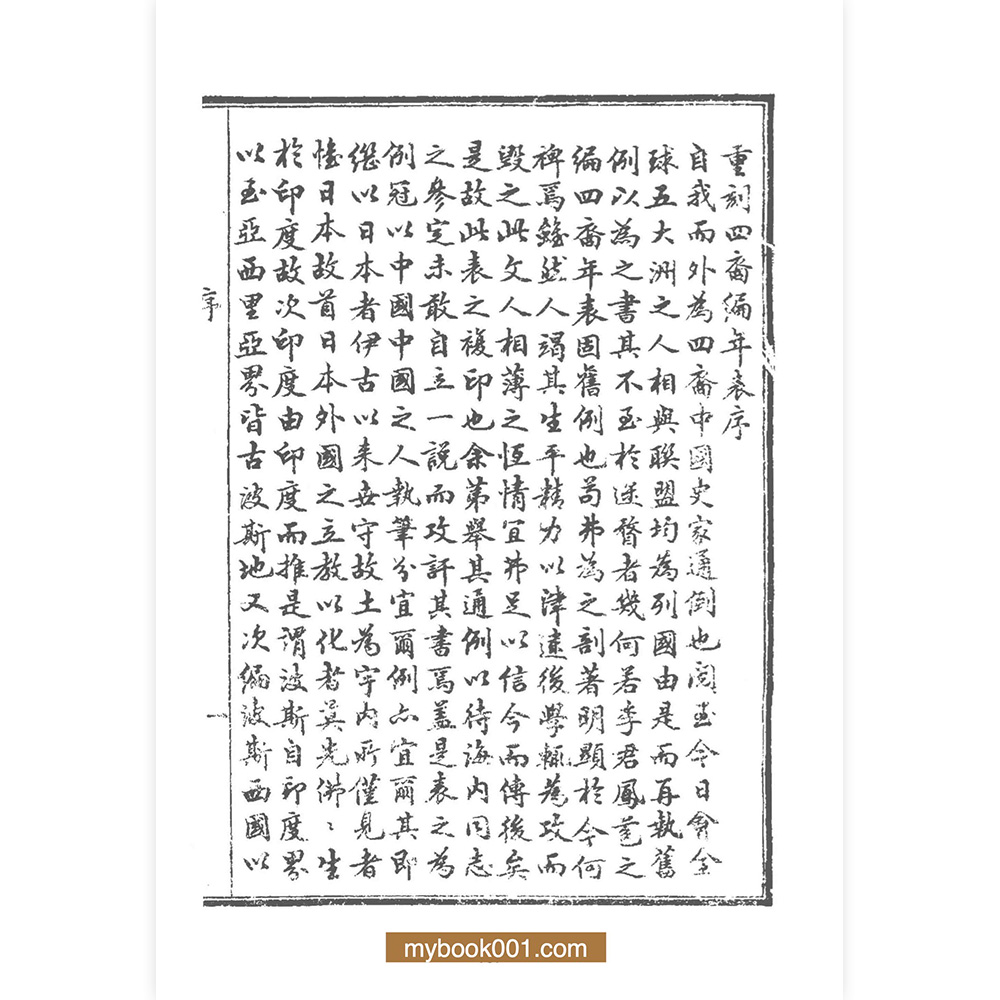 重刻四裔編年表序
自我而外為四裔中國史家通例也閱至今日會全
球五大洲之人相與聯盟均為列國由是而再執舊
例以為之書其不至於迷瞀者幾何若李君鳳苞之
編四裔年表固舊例也苟弗為之剖著明顯於今何
裨焉雖然人竭其生平精力以津逮後學輒蔑攻而
毀之此文人相薄之恆情宜弗足以信今而傳後矣
是故此表之複印也余第舉其通例以待海內同志
之參定未敢自立一說而攻訐其書焉蓋是表之為
例冠以中國中國之人執筆分宜爾例亦宜爾其即
繼以日本者伊古以來世守故土為宇內所僅見者
惟日本故首日本外國之立教以化者莫先佛〻生
於印度故次印度由印度而推是謂波斯自印度界
以至亞西里亞界皆古波斯地又次編波斯西國以
序
一
mybook001.com